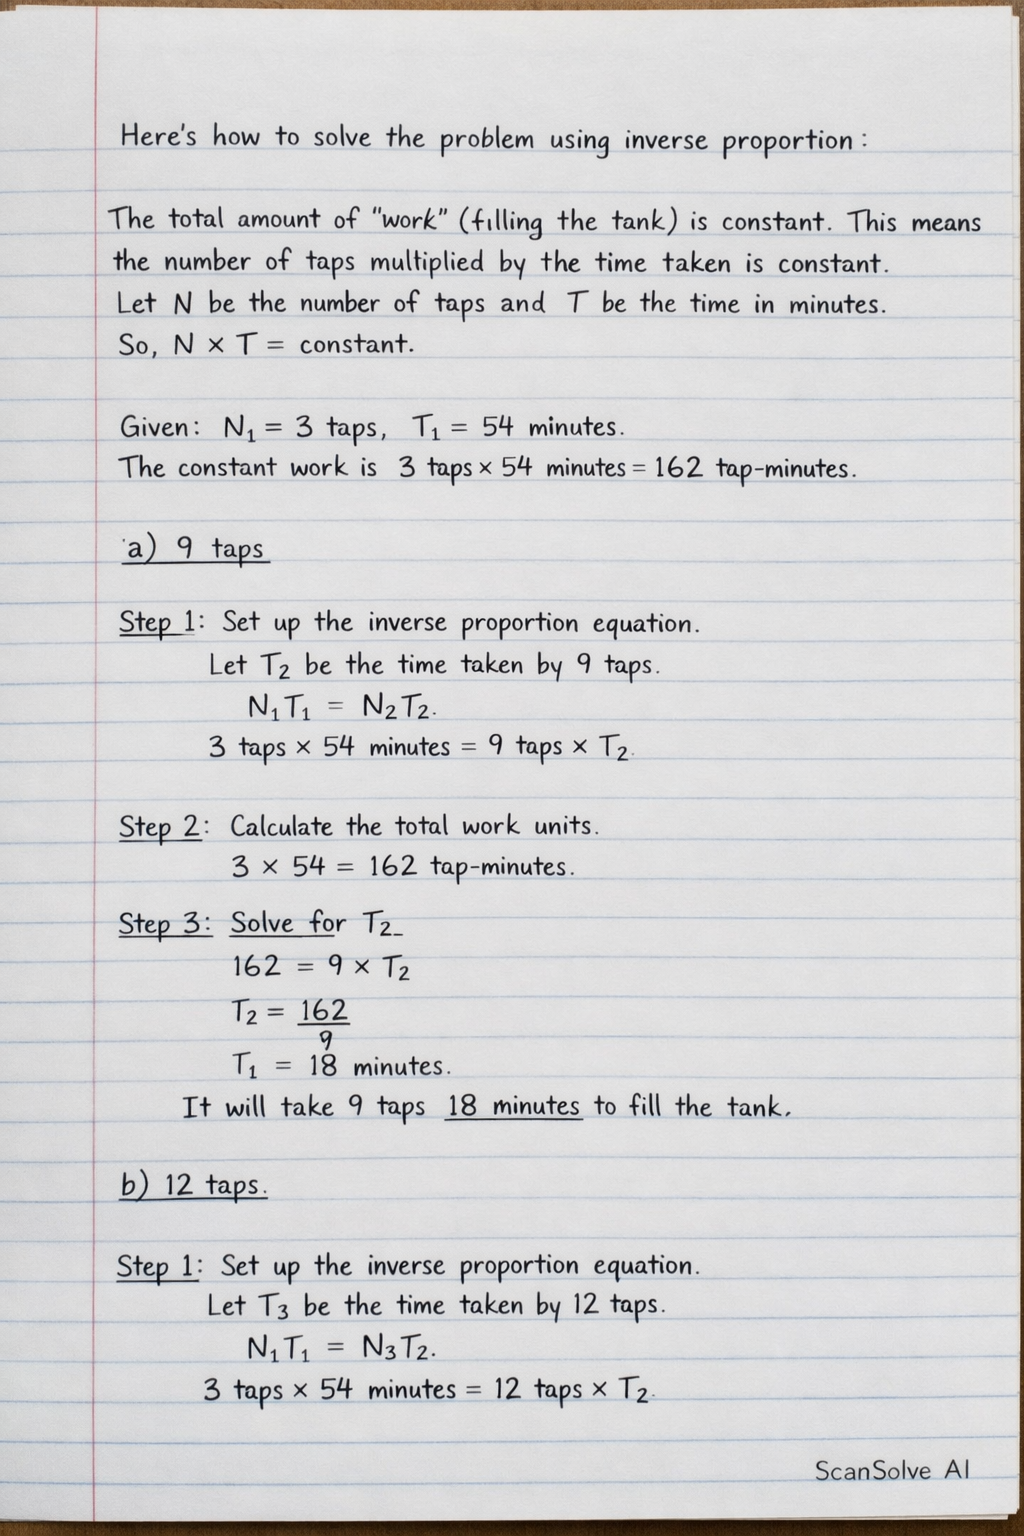 Here's how to solve the problem using inverse proportion:
The total amount of "work" (filling the tank) is constant. This means
the number of taps multiplied by the time taken is constant.
Let N be the number of taps and T be the time in minutes.
So, N × T = constant.
Given: N₁ = 3 taps, T₁ = 54 minutes.
The constant work is 3 taps × 54 minutes = 162 tap-minutes.
a) 9 taps
Step 1: Set up the inverse proportion equation.
Let T₂ be the time taken by 9 taps.
N₁T₁ = N₂T₂.
3 taps × 54 minutes = 9 taps × T₂.
Step 2: Calculate the total work units.
3 × 54 = 162 tap-minutes.
Step 3: Solve for T₂
162 = 9 × T₂
T₂ = 162
9
T₁ = 18 minutes.
It will take 9 taps 18 minutes to fill the tank.
b) 12 taps.
Step 1: Set up the inverse proportion equation.
Let T₃ be the time taken by 12 taps.
N₁T₁ = N₃T₂.
3 taps × 54 minutes = 12 taps × T₂.
ScanSolve AI